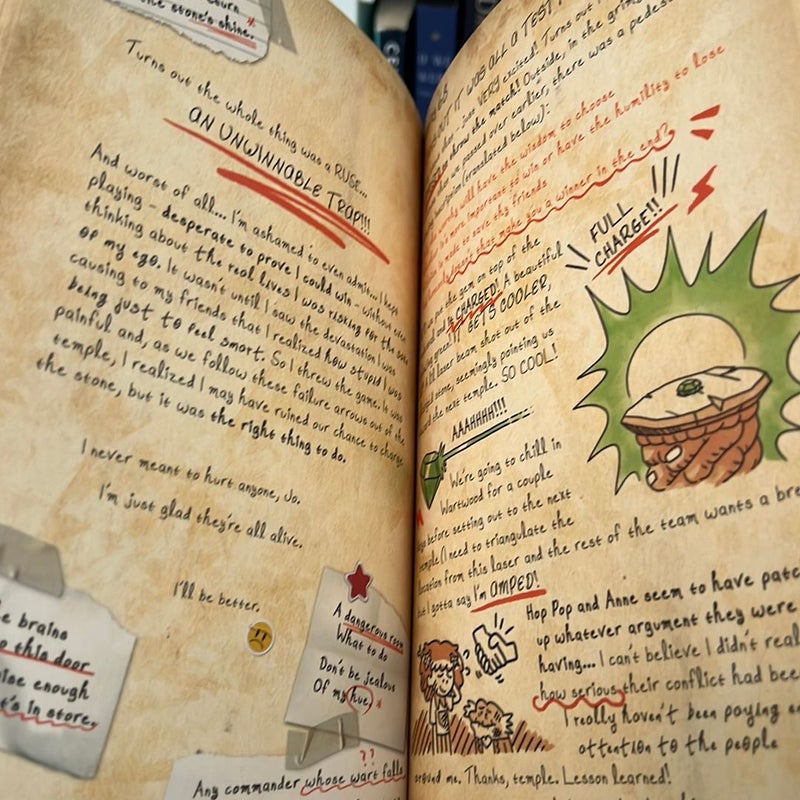 the stone's shine.
Turns out the whole thing was a RUSE...
AN UNWINNABLE TRAP!!!
And worst of all... I'm ashamed to even admit... I kept
playing - desperate to prove I could win - without even
thinking about the real lives I was risking for the sake
of my ego. It wasn't until I saw the devastation I was
causing to my friends that I realized how stupid I was
being just to feel smart. So I threw the game. It was
painful and, as we follow these failure arrows out of the
temple, I realized I may have ruined our chance to charge
the stone, but it was the right thing to do.
I never meant to hurt anyone, Jo.
I'm just glad they're all alive.
I'll be better.
brains
this door
enough
in store.
A dangerous room
What to do
Don't be jealous
Of my hue
??
Any commander whose wart falls
IT WAS ALL A TEST
just VERY excited! Turns out
throw the match! Outside, in the
we passed over earlier, there was a
(translated below):
will have the wisdom to choose
more important to win or have the humility to lose
made to save thy friends
that make you a winner in the end?
FULL
CHARGE!!
the gem on top of the
CHARGED! A beautiful
green! IT GETS COOLER,
laser beam shot out of the
gem, seemingly pointing us
the next temple. SO COOL!
AAAHHHH!!!
We're going to chill in
Wartwood for a couple
days before setting out to the next
temple (I need to triangulate the
location from this laser and the rest of the team wants a
but I gotta say I'm AMPED!
Hop Pop and Anne seem to have
up whatever argument they were
having... I can't believe I didn't
how serious their conflict had
I really haven't been paying
attention to the people
around me. Thanks, temple. Lesson learned!